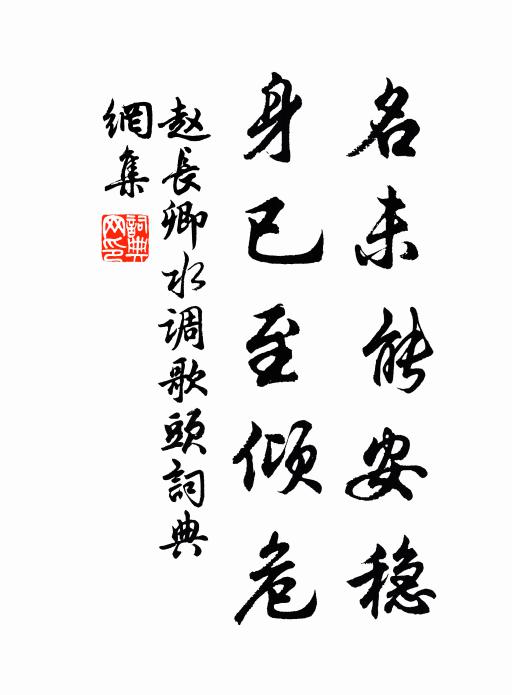 名未能安稳
身已至倾危
赵長卿水调歌頭詞典
網集
詞典
网印